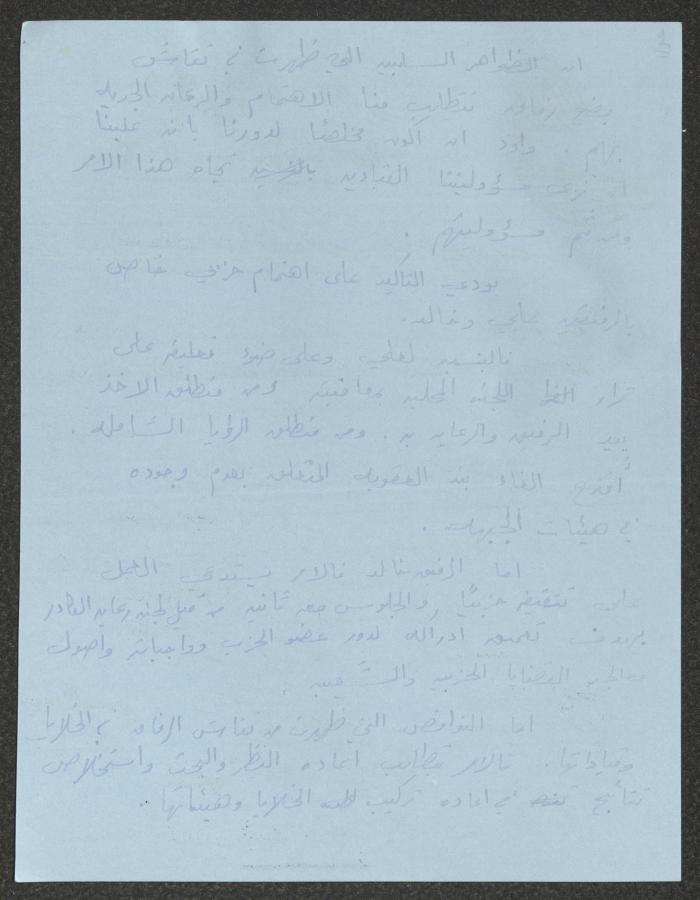 ان الظواهر السلبيه التي ظهرت في نقاش
بضع رفاق تتطلب منا الاهتمام والرعايه الجديه
بهم. واود ان اكون مخلصا لدورنا بأن علينا
ان نرى مسؤوليتنا القياديه تجاه هذا الامر
ومن ثم مسؤوليتهم.
بودي التأكيد على اهتمام حزبي خاص
بالرفيقين علي وخالد.
فالبنسبه لعلي وعلى ضوء تعليقه على
قرار اللجنه المحليه بمعاقبته ومن منطلق الاخذ
بيد الرفيق والرعايه به. ومن منطلق الرؤيا الشامله.
أقترح الغاء بند العقوبه المتعلق بعدم وجوده
في هيئات الجبهه.
اما الرفيق خالد فالامر يستدعي العمل
على تثقيفه حزبيًا، والجلوس معه ثانيه من قبل لجنة رعاية الكادر
بهدف تعميق ادراكه لدور عضو الحزب وواجباته واصول
معالجه القضايا الحزبيه والشعبيه.
اما النواقص التي ظهرت من نقاش الرفاق في الخلايا
وقياداتها. فالامر يتطلب اعاده النظر والبحث واستخلاص
نتائج في اعاده تركيب الخلايا وهيئاتها.